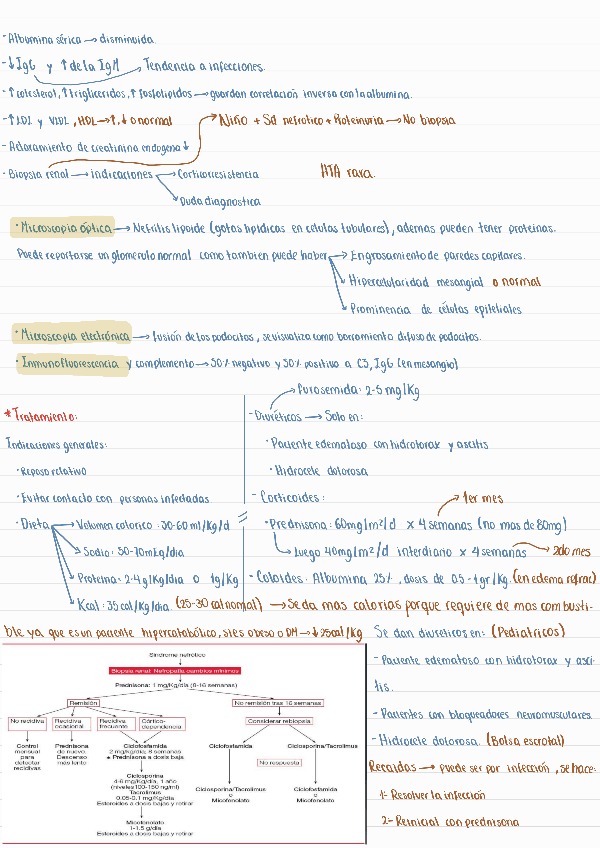 -Albumina sérica → disminuida.
-↓IgG y ↑ de la IgM → Tendencia a infecciones.
-↑colesterol, ↑trigliceridos, ↑fosfolipidos → guardan correlación inversa con la albumina.
-↑LDL y VLDL, HDL → ↑, ↓ o normal
Niño + Sd nefrotico + Proteinuria → No biopsia
-Aclaramiento de creatinina endogena ↓
-Biopsia renal → indicaciones → Corticorresistencia
HTA rara.
Duda diagnostica
·Microscopia óptica → Nefritis lipoide (gotas lipidicas en celulas tubulares), ademas pueden tener proteinas.
Puede reportarse un glomerulo normal como tambien puede haber → Engrosamiento de paredes capilares.
Hipercelularidad mesangial o normal
Prominencia de células epiteliales
·Microscopia electrónica → fusión de los podocitos, se visualiza como borramiento difuso de podocitos.
·Inmunofluorescencia y complemento → 50% negativo y 50% positivo a C3, IgG (en mesangio)
*Tratamiento:
Indicaciones generales:
·Reposo relativo
·Evitar contacto con personas infectadas
·Dieta → Volumen calorico: 30-60 ml/Kg/d
Sodio: 50-70mEq/dia
Proteina: 2-4g/Kg/dia o 1g/Kg
Kcal: 35cal/Kg/dia. (25-30 cal normal) → Se da mas calorias porque requiere de mas combusti-
ble ya que es un paciente hipercatabólico, si es obeso o DM → ↓25cal/Kg
Furosemida: 2-5 mg/Kg
-Diuréticos → Solo en:
·Paciente edematoso con hidrotorax y ascitis
·Hidrocele dolorosa
-Corticoides:
1er mes
·Prednisona: 60mg/m²/d x 4 semanas (no mas de 80mg)
Luego 40mg/m²/d interdiario x 4 semanas → 2do mes
-Coloides: Albumina 25%, dosis de 0.5-1gr/Kg. (en edema refrac)
Síndrome nefrótico
Biopsia renal: Nefropatía cambios mínimos
Prednisona: 1 mg/Kg/día (8-16 semanas)
Remisión
No remisión tras 16 semanas
No recidiva
Recidiva ocasional
Recidiva frecuente
Córtico-dependencia
Considerar rebiopsia
Control mensual para detectar recidivas.
Prednisona de nuevo. Descenso más lento
Ciclofosfamida
2 mg/kg/día, 8 semanas
+ Prednisona a dosis baja
Ciclosporina
4-6 mg/Kg/día, 1 año
(niveles 100-150 ng/ml)
Tacrolimus
0.05-0.1 mg/Kg/día
Esteroides a dosis bajas y retirar
Micofenolato
1-1,5 g/día
Esteroides a dosis bajas y retirar
Ciclofosfamida
Ciclosporina/Tacrolimus
No respuesta
Ciclosporina/Tacrolimus
o
Micofenolato
Ciclofosfamida
o
Micofenolato
Se dan diureticos en: (Pediatricos)
-Paciente edematoso con hidrotorax y asci-
tis.
-Pacientes con bloqueadores neuromusculares
-Hidrocele dolorosa. (Bolsa escrotal)
Recaidas → puede ser por infección, se hace:
1- Resolver la infección
2- Reiniciar con prednisona